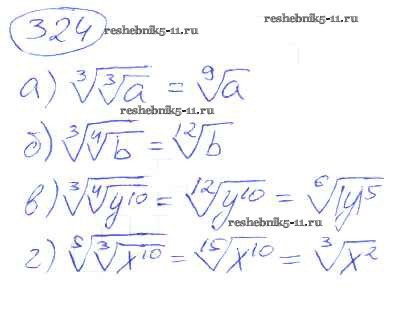 324 reshebnik5-11.ru
reshebnik5-11.ru
а) ∛(∛a) = ⁹√a
reshebnik5-11.ru
б) ∛(⁴√b) = ¹²√b
в) ∛(⁴√(y¹⁰)) = ¹²√(y¹⁰) = ⁶√(|y|⁵)
reshebnik5-11.ru
г) ⁵√(∛(x¹⁰)) = ¹⁵√(x¹⁰) = ∛(x²)